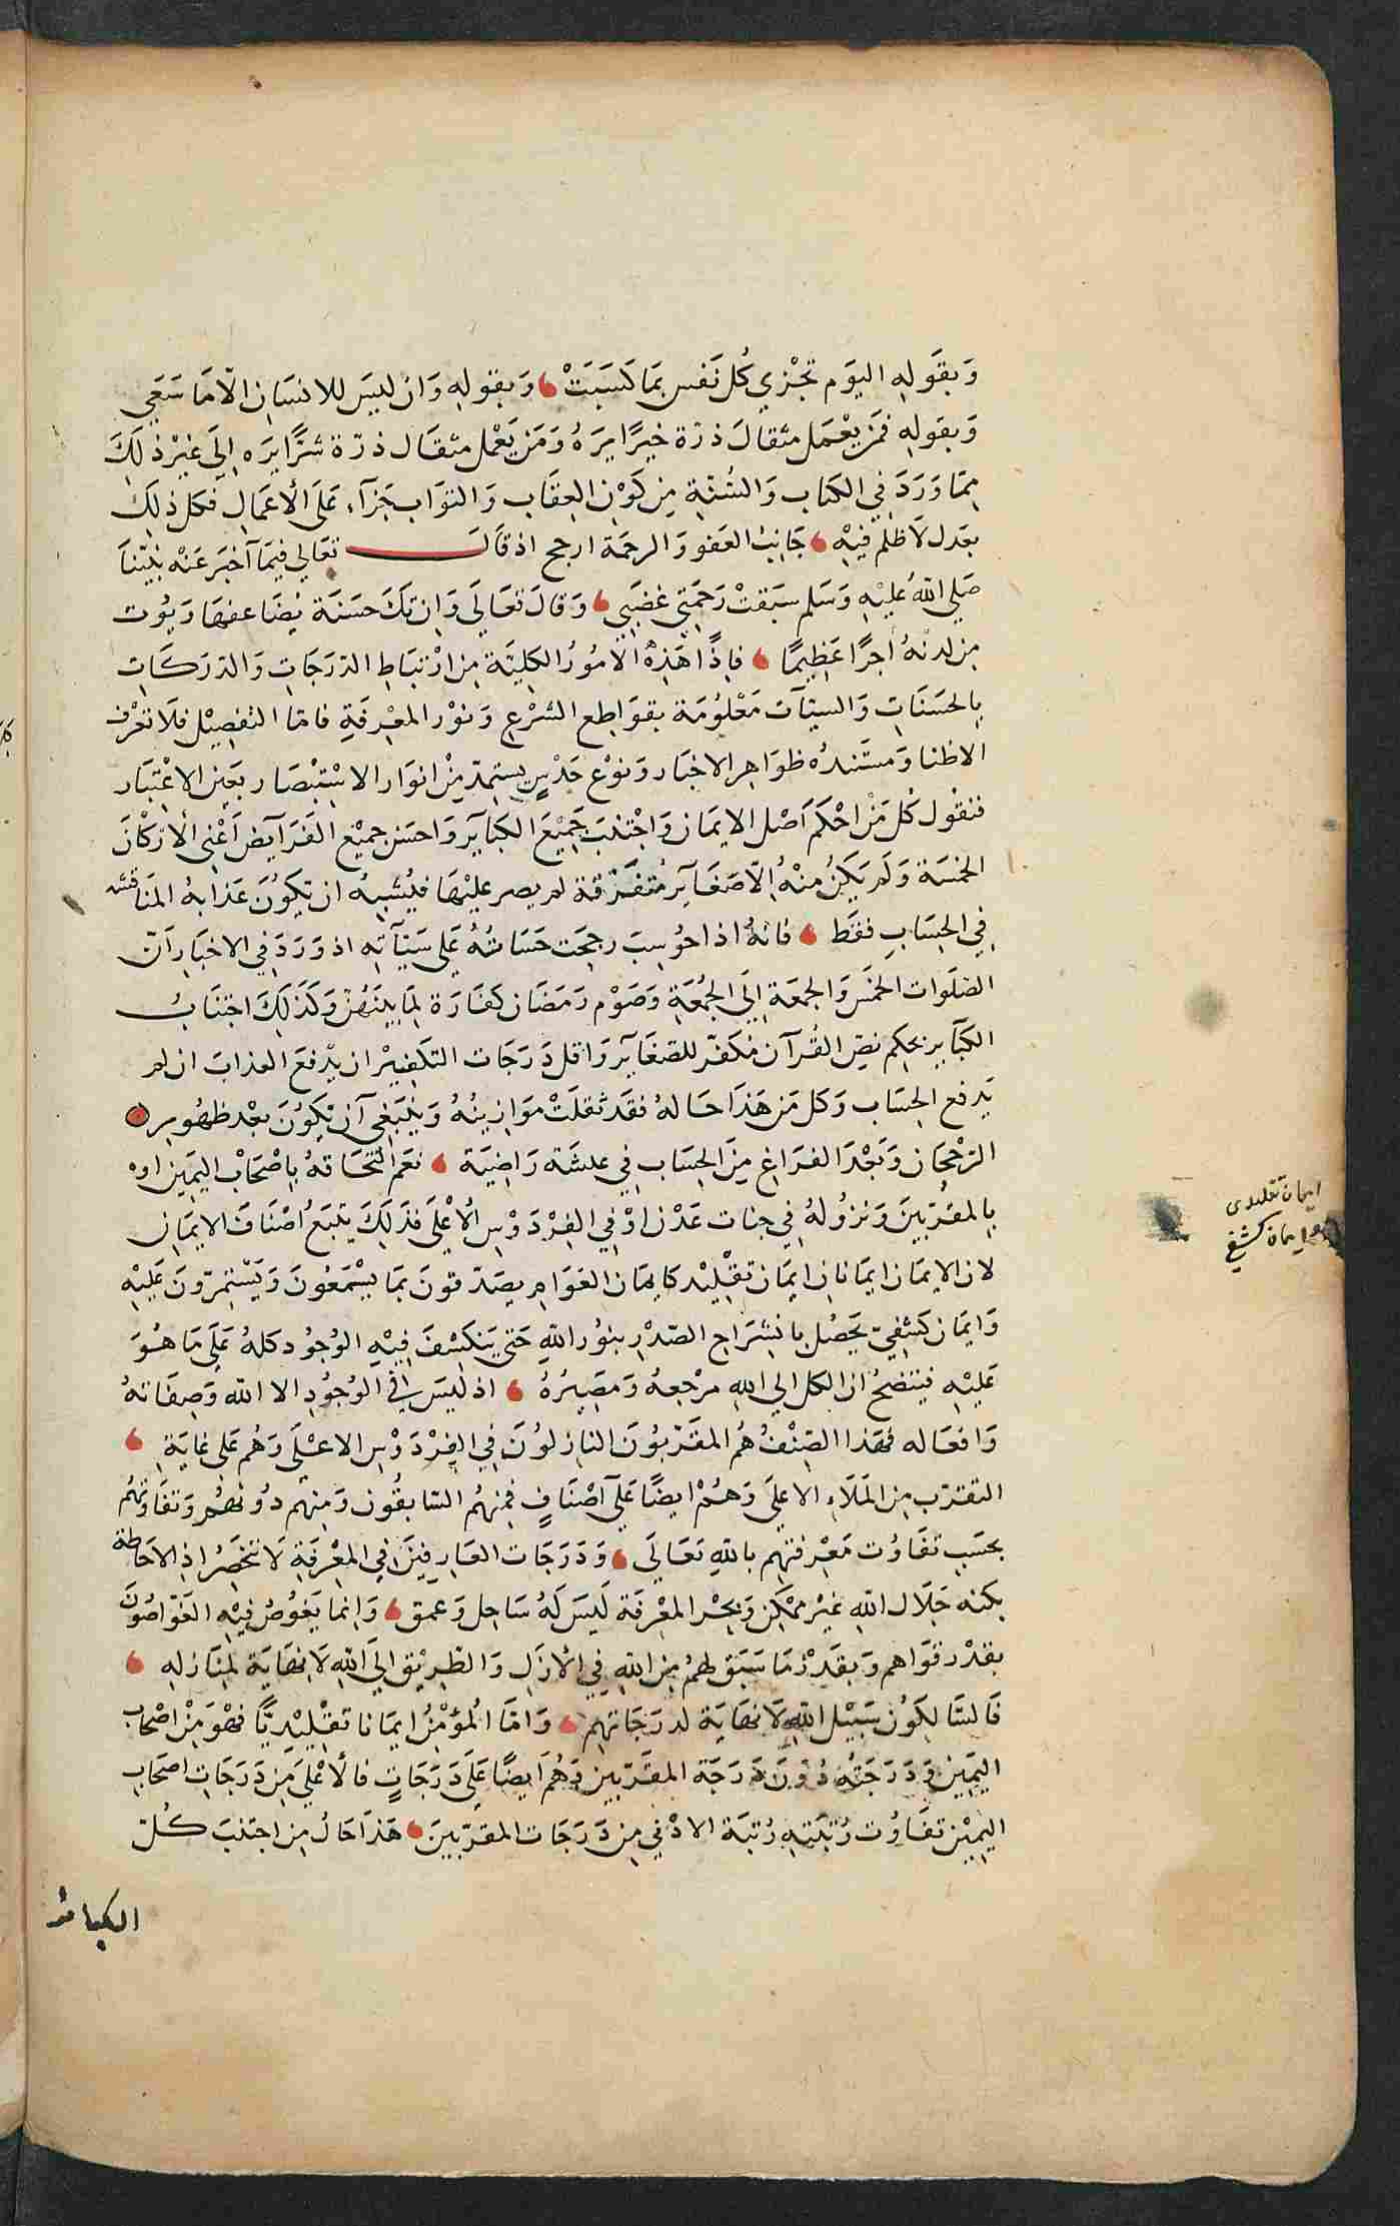 وَبقَولِهِ اليَوم تجْزي كُل نَفس بمَا كَسَبَتْ وَبقولهِ وَان ليسَ للانسَانِ الّامَا سَعَي
وَبقولهِ فمَن يعْمَل مثقالَ ذرّة خيرًا يرَهُ وَمَن يَعْمل مثقَال ذرّة شرًّا يرَه إلَى غيْر ذلَكَ
ممّا وَرَدَ فِي الكتاب وَالسُّنّةِ مِن كَوْن العِقَاب وَالثوَاب جَزآء عَلَى الأعمَالِ فكل ذلِكَ
بعَدل لَا ظلم فيهِ جَانِب العَفو وَالرحمَة ارجح اذ قالَ تعَالي فيمَا آخبَرَ عَنْه نبيّنَا
صَلي اللهُ عليْهِ وَسَلم سبَقتْ رَحمَتِي غضَبَي وَقالَ تعَالَي وَان تكَ حسَنَة يُضَاعفهَا وَيُوت
مِن لدنهُ أجرًا عَظِيمًا فاِذًا هَذِهْ الامُورُ الكليّة مِن ارْتبَاطِ الدّرَجَاتِ وَالدّرَكَاتِ
بِالحسَنَاتِ وَالسيئآت مَعْلُومَة بقوَاطِع الشرْعِ وَنوْر المعْرفةِ فامّا التفصِيْل فلَا تعْرف
الا ظنا وَمستَندهُ ظوَاهِر الاخبَار وَنوْع حَدْسٍ يستمدّ مِنْ انوَار الاسْتبْصَار بعَين الاعْتبَار
فنقول كُل مَنْ احْكمَ اَصْل الايمَان وَاجْتنبَ جَميْعَ الكبَآير وَاحسَن جميْع الفَرَآيض أعْنِي الأرْكَانَ
الخمْسَة وَلَم يَكنُ منْهُ إلّا صَغَآير مُتفَرّقة لم يصر عليْهَا فيُشبهُ ان تكونَ عَذابهُ المنَاقشه
فِي الحسَابِ فقَط فانهُ اذا حُوسِبَ رجحَت حَسَناتُهُ عَلى سَيّآتِهِ اذ وَرَدَ فِي الاخبَار آنّ
الصَلَوات الخمَس وَالجمعَة إلَي الجُمْعَةِ وَصَوْم رَمَضَان كفارَة لِمَا بينَهُنّ وَكَذَلِكَ اجتنَابُ
الكبَآير بحكمِ نصّ القُرآن مُكفّر للصّغَآير وَاقل دَرَجَات التكفِيْر ان يدْفعَ العذابَ ان لم
يَدفع الحِسَاب وَكل مَن هَذَا حَالهُ فقَد ثقلَتْ مَوَازينُهُ وَينبَغي آن يكوُنَ بعْد ظهُورِ
الرّجْحَان وَبَعْد الفرَاغِ مِنَ الحِسَابِ فِي عيشَة رَاضِيَة نعَم التحَاقهُ بِاصْحَابْ اليَمِين اوْ
بِالمقرّبينَ وَنزولُهُ فِي جنات عَدْن اوْ فِي الفِرْدَوْس الأعْلَى فذلَكَ يتبَعُ أصْنَافَ الايمَان
لان الايمَان ايمَانان ايمَان تقْليْد كايمَان العَوَام يصَدّقونَ بمَا يسْمَعُونَ وَيَسْتمِرّونَ عَليْهِ
وَايمَان كشفيّ يحَصُل بانشرَاحِ الصّدْرِ بنوُر اللهِ حَتي يَنكَشفَ فيْهِ الوُجُود كلهُ عَلَى مَا هُوَ
عَليْهِ فيتضحُ ان الكل الي اللهِ مرْجعهُ وَمَصِيرُهُ اذ ليسَ في الوُجُودِ الا الله وَصِفَاتهُ
وَافعَاله فهَذا الصّنْفُ هُم المقَرّبُونَ النازلوُنَ في الفِرْدَوْس الاعْلَى وَهُم عَلى غايَةِ
التقرّب مِن المَلَاء الاعلَى وَهُمْ ايضًا عَلَى آصْنَافٍ فمنهُم السّابقُون وَمنهم دُونهُم وَتفاوتهُم
بحسَبِ تفَاوُت مَعْرفتهِم باللهِ تعَالَى وَدَرَجَات العَارِفينَ فِي المعْرفَةِ لَا تنحَصُرُ اذ الاحَاطَة
بكنه جَلَال اللهِ غيْر ممْكن وَبحْر المعْرفَة لَيسَ لَهُ سَاحِل وَعمق وَانما يَغوُصُ فيْهِ الغَوّاصُونَ
بقدْر قوَاهم وَبقَدْرْ مَا سَبَق لهمْ مِن اللهِ فِي الأزَل وَالطّريْق الَي اللهِ لَا نهَايَة لِمنَازلِهِ
فَالسَّالِكَوُن سَبيْل اللهِ لَا نهَايَة لدرَجَاتهِم وَامّا المُؤمْنُ ايمَانا تقْليْديّاً فهْوَ مِنْ اصْحَاب
اليَمِين وَدَرَجَتُه دُوْنَ دَرَجَة المقَرّبين وَهُم ايضًا عَلَى دَرَجَاتٍ فالأعْلى مِن دَرَجَاتِ اصحَابِ
اليَمِيْن تفَاوُت رُتبَتِهِ رُتبَة الادْني مِن دَرَجَات المقرّبينَ هَذا حَالُ مِن اجتنبَ كُلّ
الكبائر
ايمان تقليدى
وايمان كشفي